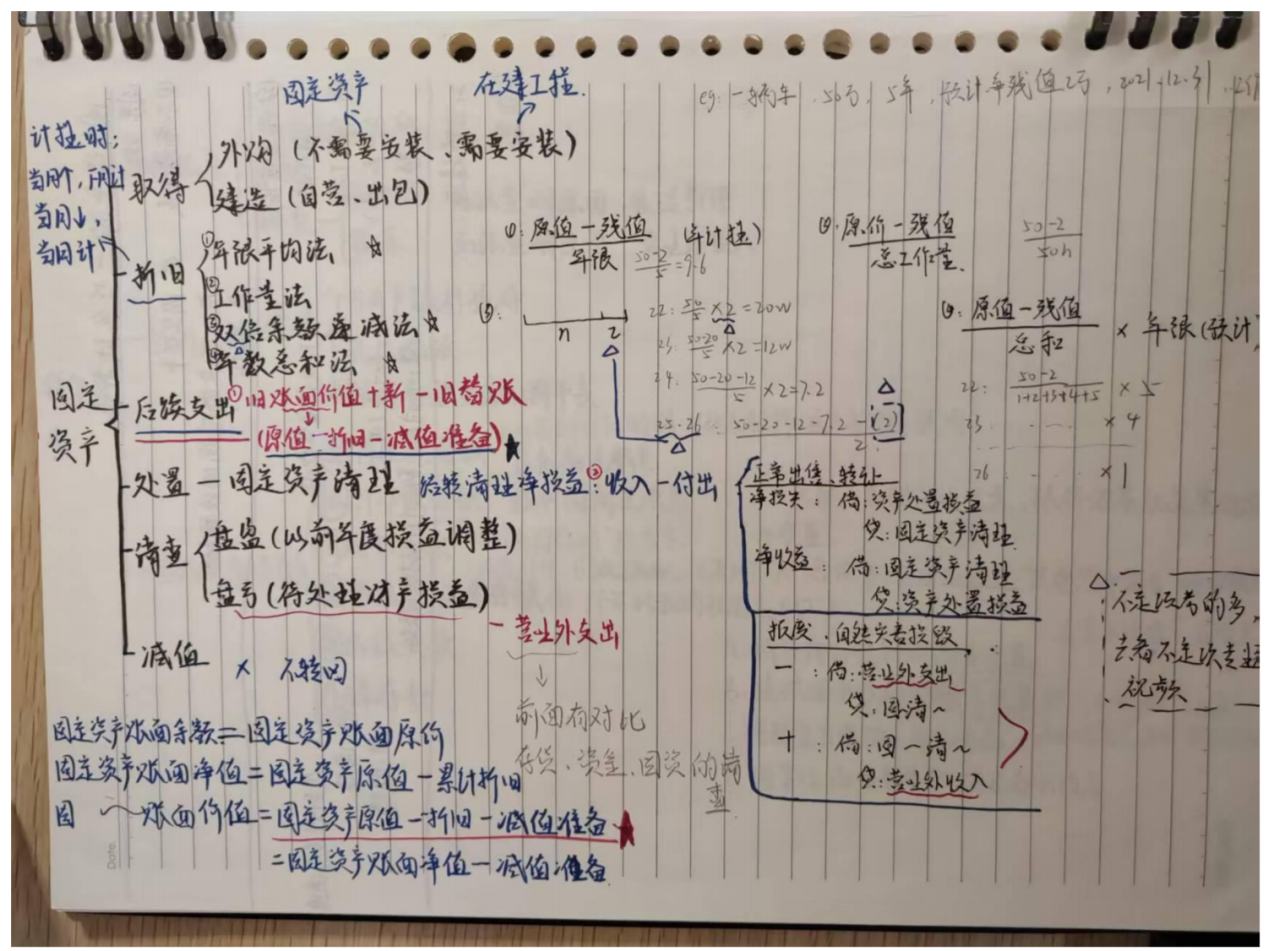 固定资产 在建工程.
eg: 一辆车, 50万, 5年, 预计净残值2万, 2021.12.31
计提时:
当月个, 下月计
当月↓,
当月计
固定资产
取得
外购 (不需要安装、需要安装)
建造 (自营、出包)
折旧
①年限平均法 ☆
②工作量法
③双倍余额递减法 ☆
④年数总和法 ☆
①: 原值-残值 / 年限 (年计提)
50-2 / 5 = 9.6
②: 原价-残值 / 总工作量.
50-2 / 50h
③: n 2
22: 50/5 ×2=20w
23: 50-20 / 5 ×2=12w
24: 50-20-12 / 5 ×2=7.2
25-26: 50-20-12-7.2-(2) / 2
④: 原值-残值 / 总和 × 年限(预计
22: 50-2 / 1+2+3+4+5 × 5
23 ...... × 4
26 ...... × 1
后续支出 ①旧账面价值+新-旧替账
(原值-折旧-减值准备) ★
处置 - 固定资产清理 结转清理净损益②: 收入-付出
清查
盘盈 (以前年度损益调整)
盘亏 (待处理财产损益)
- 营业外支出
↓
前面有对比
存货、资金、固资的清查
减值 × 不转回
正常出售、转让
净损失: 借: 资产处置损益
贷: 固定资产清理
净收益: 借: 固定资产清理
贷: 资产处置损益
报废、自然灾害损毁
一: 借: 营业外支出
贷: 固清~
十: 借: 固一清~
贷: 营业外收入
△: 不定项考的多,
去看不定项专题
视频
固定资产账面余额=固定资产账面原价
固定资产账面净值=固定资产原值-累计折旧
固 ~账面价值=固定资产原值-折旧-减值准备 ★
=固定资产账面净值-减值准备
Date.